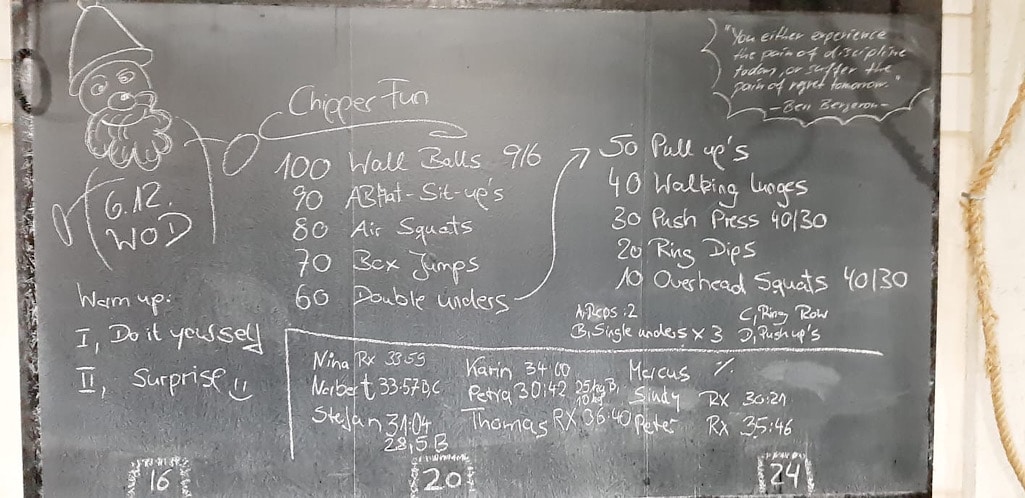 "You either experience
the pain of discipline
today, or suffer the
pain of regret tomorrow."
- Ben Bergeron -
Chipper Fun
6.12.
WOD
100 Wall Balls 9/6
90 ABMat-Sit-up's
80 Air Squats
70 Box Jumps
60 Double unders
50 Pull up's
40 Walking lunges
30 Push Press 40/30
20 Ring Dips
10 Overhead Squats 40/30
A, Reps :2
B, Single unders x 3
C, Ring Row
D, Push up's
Warm up:
I, Do it yourself
II, Surprise
Nina Rx 33:59
Norbert 33:57 D,C
Stefan 31:04
28,5 B
Karin 34:00
Petra 30:42 25kg B,
10kg
Thomas RX 36:40
Marcus %
Sindy RX 30:21
Peter RX 35:46
16
20
24